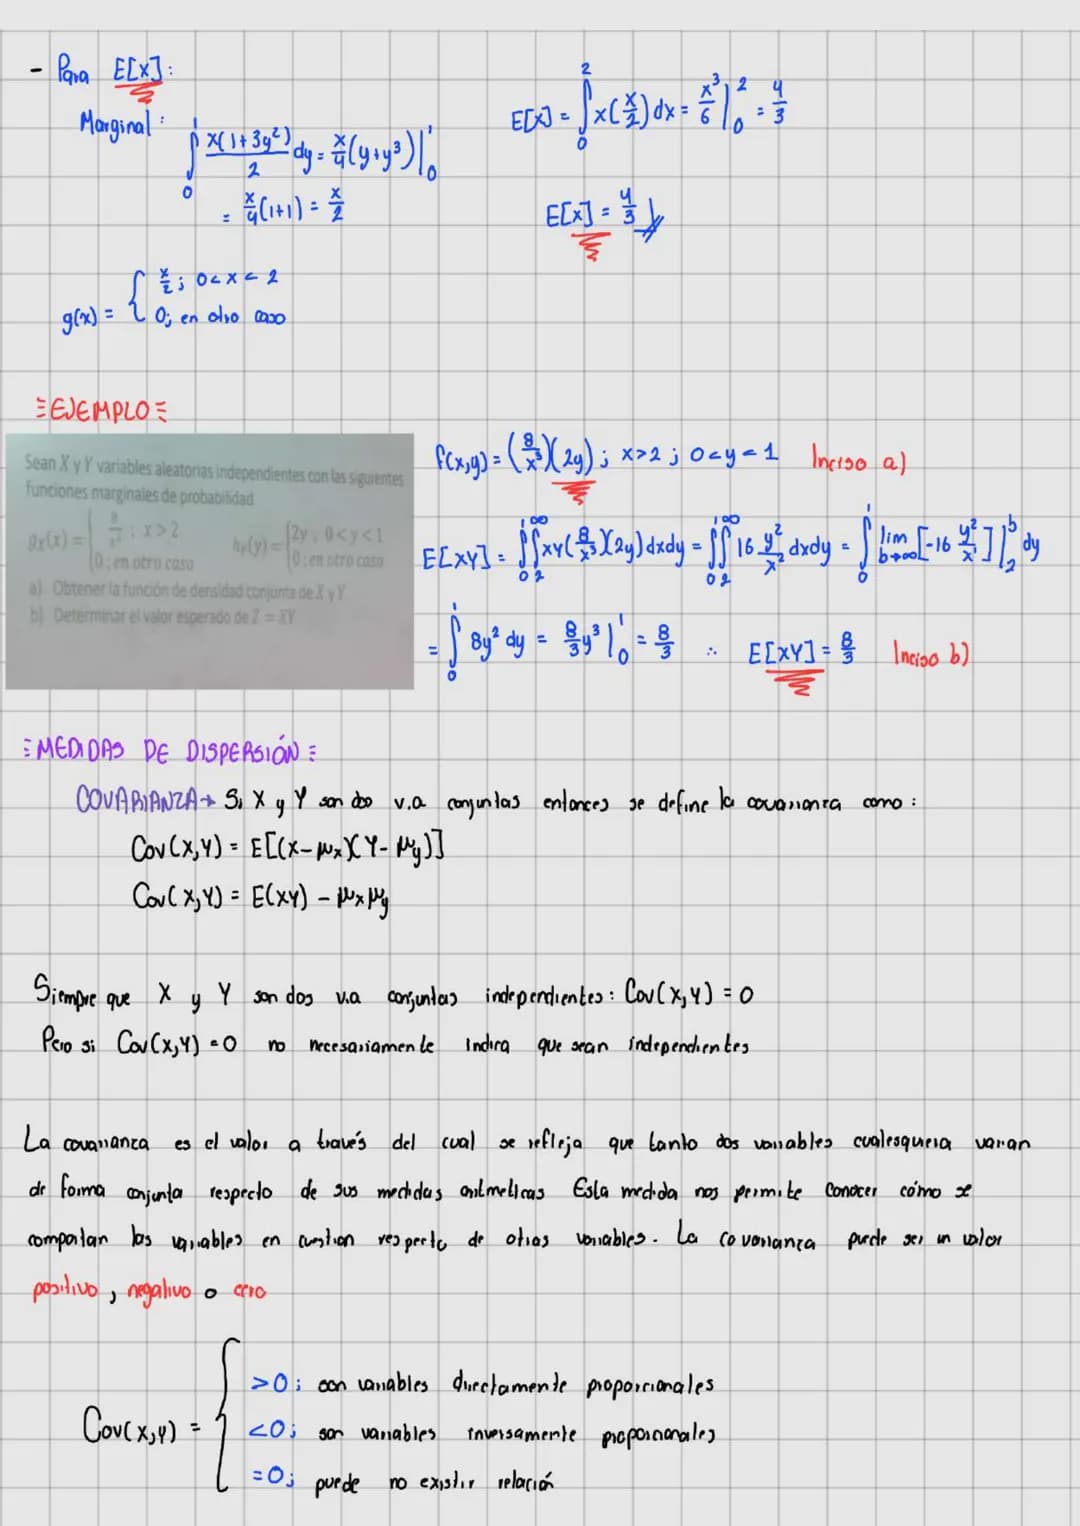 - Para E[X]:
Marginal: ∫₀¹ x(1+3y²)/2 dy = x/4 (y+y³)|₀¹
= x/4 (1+1) = x/2
g(x) = { x/2; 0<x<2
0; en otro caso
E[X] = ∫₀² x(x/2) dx = x³/6 |₀² = 4/3
E[X] = 4/3
EJEMPLO
Sean X y Y variables aleatorias independientes con las siguientes
funciones marginales de probabilidad
gx(x) = { 8/x³ ; x > 2
0; en otro caso
hy(y) = { 2y ; 0 < y < 1
0; en otro caso
a) Obtener la función de densidad conjunta de X y Y
b) Determinar el valor esperado de Z = XY
f(x,y) = (8/x³)(2y) ; x>2 ; 0<y<1 Inciso a)
E[XY] = ∫₀¹∫₂^∞ xy(8/x³)(2y) dxdy = ∫₀¹∫₂^∞ 16 y²/x² dxdy = ∫₀¹ lim b→∞ [-16 y²/x]|₂ᵇ dy
= ∫₀¹ 8y² dy = 8/3 y³ |₀¹ = 8/3 ∴ E[XY] = 8/3 Inciso b)
MEDIDAS DE DISPERSIÓN
COVARIANZA → Si X y Y son dos v.a conjuntas entonces se define la covarianza como:
Cov(X,Y) = E[(X-μx)(Y-μy)]
Cov(X,Y) = E(XY) - μxμy
Siempre que X y Y son dos v.a conjuntas independientes: Cov(X,Y) = 0
Pero si Cov(X,Y) = 0 no necesariamente indica que sean independientes
La covarianza es el valor a través del cual se refleja que tanto dos variables cualesquiera varian
de forma conjunta respecto de sus medidas aritmeticas Esta medida nos permite conocer cómo se
comportan las variables en cuestion respecto de otras variables. La covarianza puede ser un valor
positivo, negativo o cero
Cov(X,Y) = { >0; son variables directamente proporcionales
<0; son variables inversamente proporcionales
=0; puede no existir relación